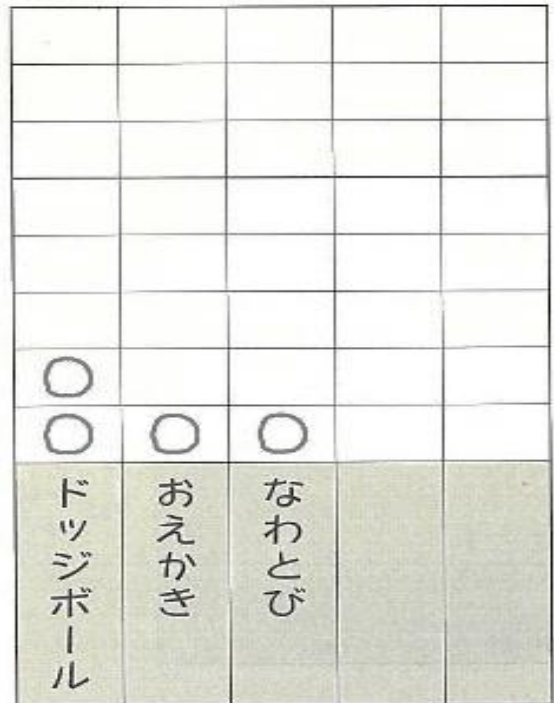 ドッジボール
おえかき
なわとび